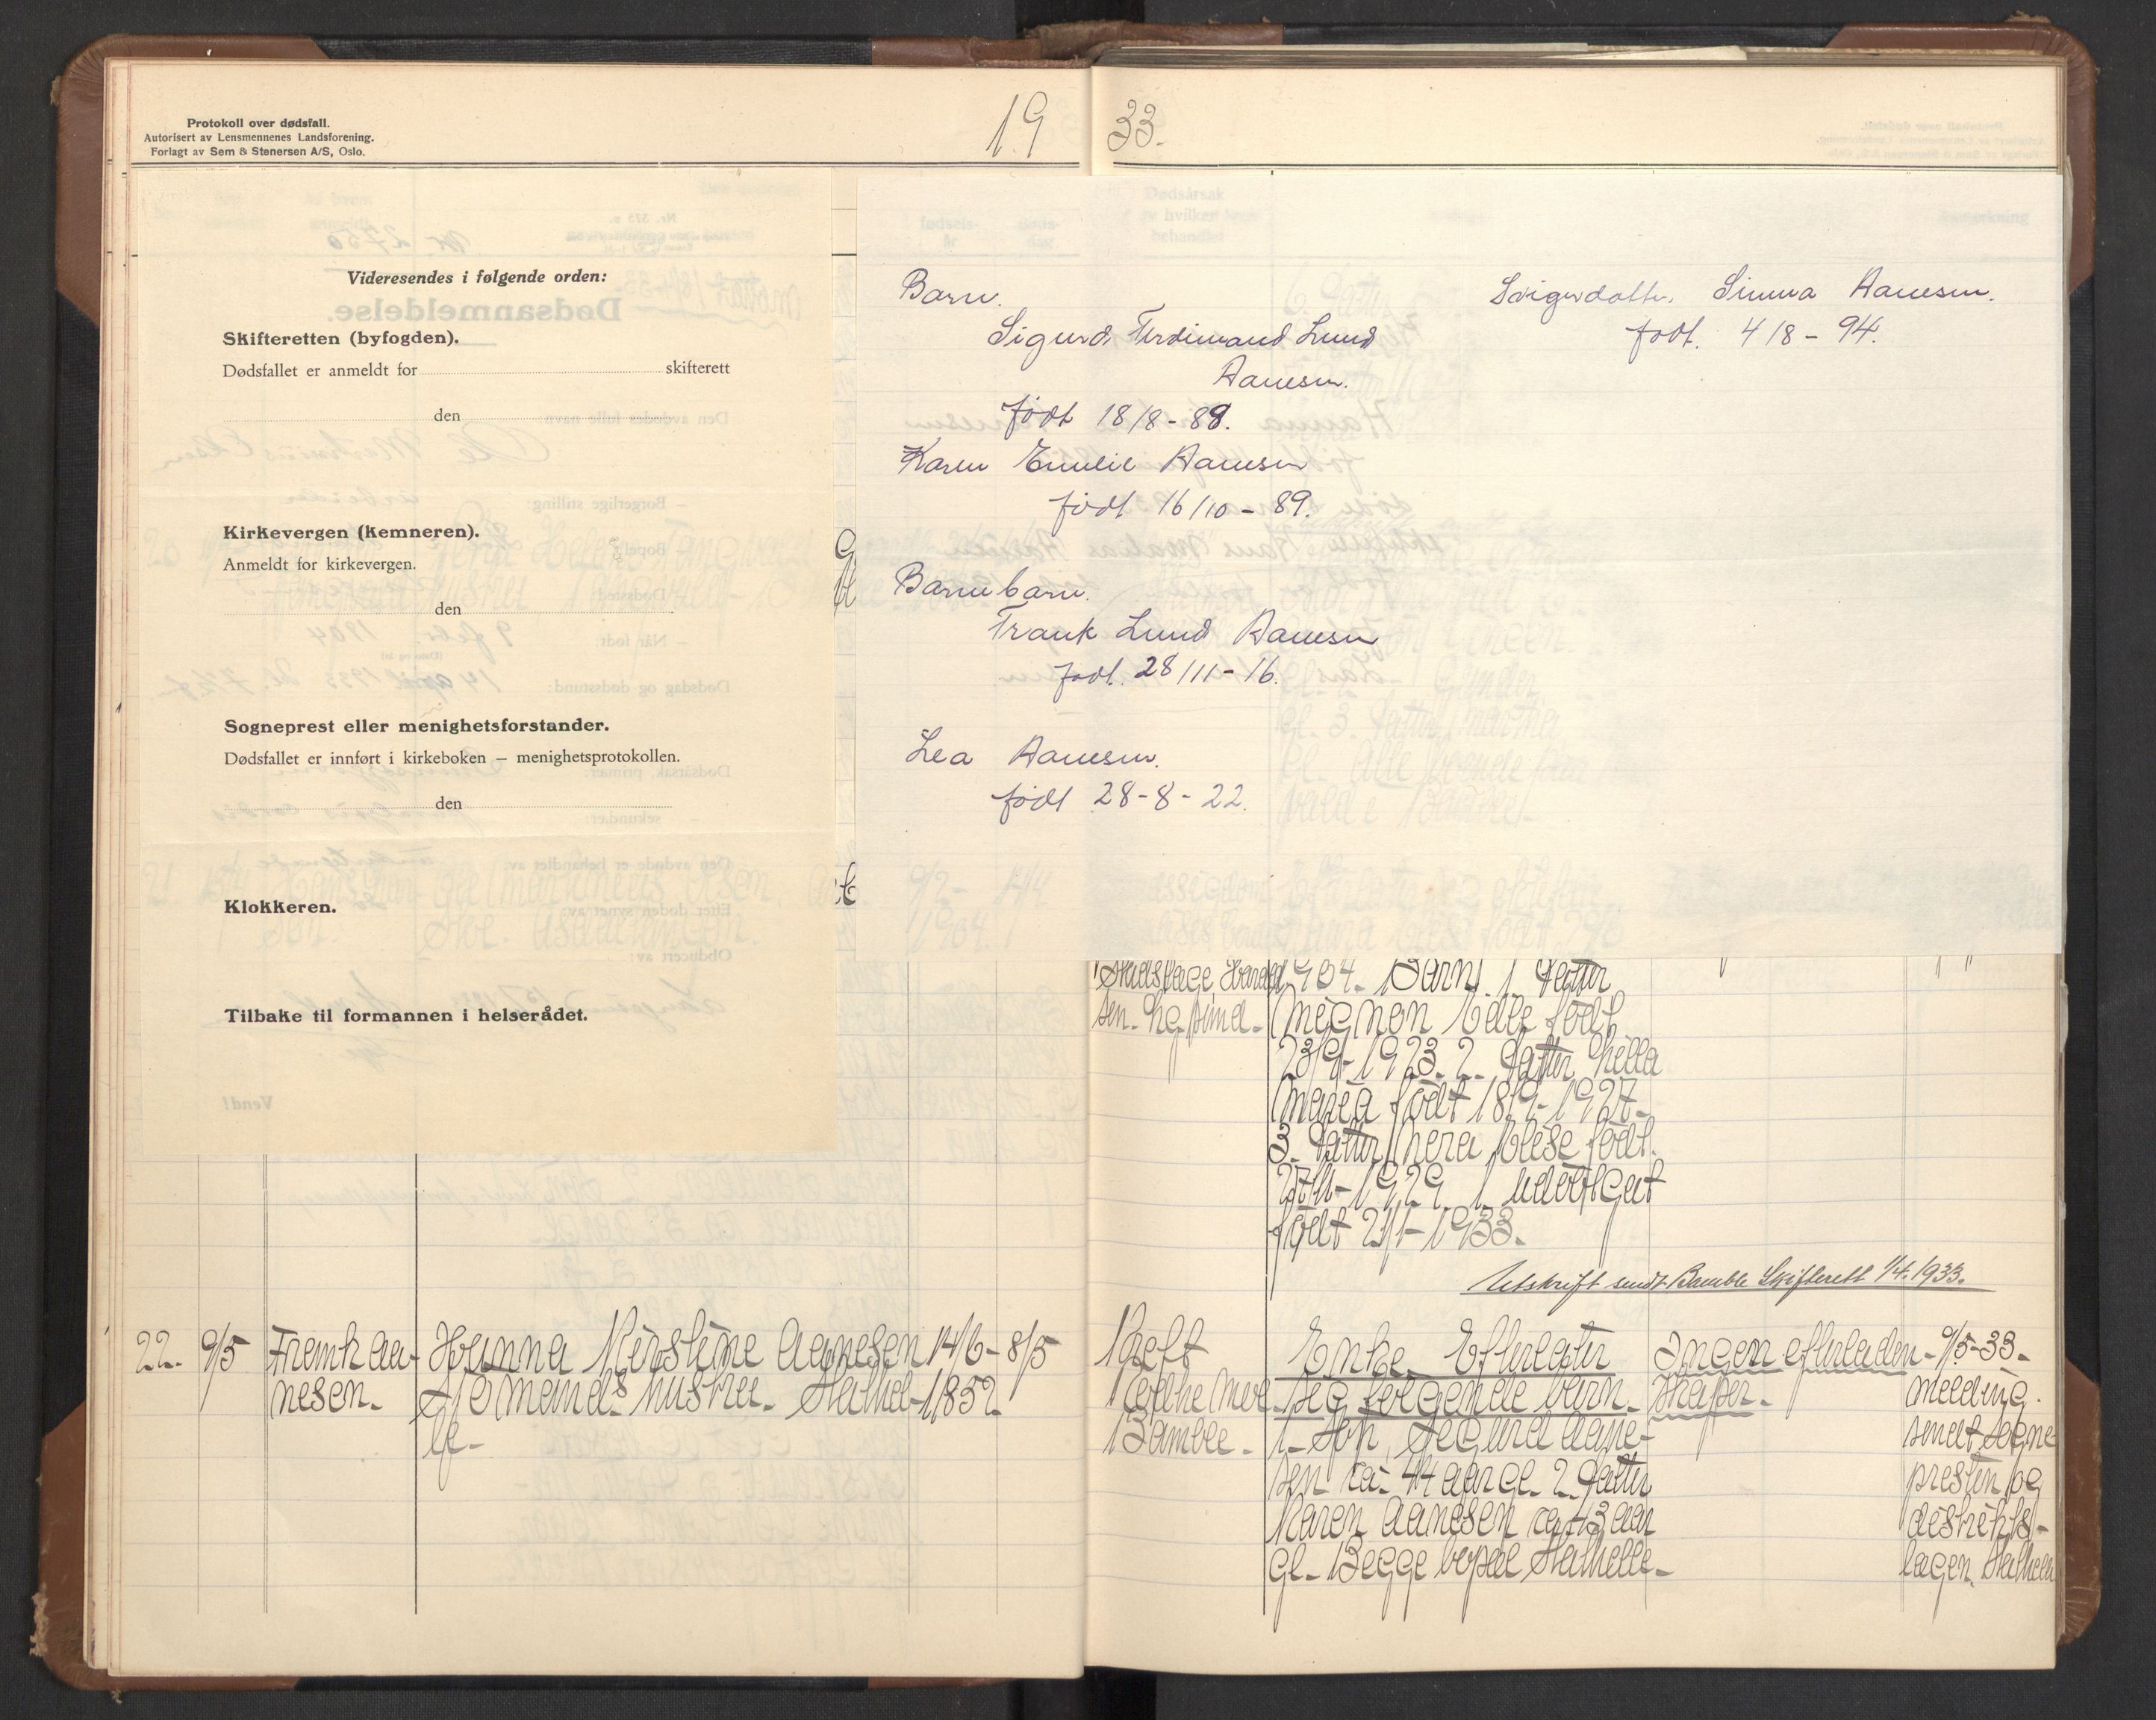 Protokoll over dødsfall.
Autorisert av Lensmennenes Landsforening.
Forlagt av Sem & Stenersen A/S, Oslo.
19 33.
Videresendes i følgende orden:
Skifteretten (byfogden).
Dødsfallet er anmeldt for skifterett
den
Kirkevergen (kemneren).
Anmeldt for kirkevergen.
den
Sogneprest eller menighetsforstander.
Dødsfallet er innført i kirkeboken – menighetsprotokollen.
den
Klokkeren.
Tilbake til formannen i helserådet.
Barn.
Sigurd Ferdinand Lund
Aanesen.
født 18/8-88.
Karen Emelie Aanesen
født 16/10-89.
Barnebarn.
Frank Lund Aanesen
født. 28/11-16.
Lea Aanesen.
født 28-8-22.
Svigerdatter. Simna Aanesen.
født. 4/8-94.
1904. Barn. 1. datter
Mignon Edle født
23/9-1923. 2. datter Hella
Maria født 18/9-1927-
3. datter Nora Elise født.
1929. 1 udøpt gut
født 21/1-1933.
Utskrift sendt Bamble Skifterett 1/4. 1933.
22. 9/5 Frank Aa-
nesen.
Hanna Kirstine Aanesen
Sjømands hustru. Stathel-
le-
14/6-
1852.
8/5
Kreft
Bamble.
Enke. Efterlater
seg følgende barn.
1. Søn Sigurd Aane-
sen ca. 44 aar gl. 2. datter
Karen Aanesen ca 43 aar
gl. Begge bopæl Stathelle.
Ingen efterladen-
skaper.
9/5-33.
melding.
sendt sogne
presten og
distrikts-
lægen.